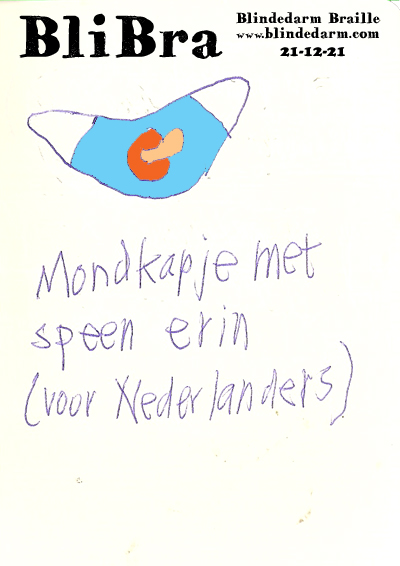 BliBra
Blindedarm Braille
www.blindedarm.com
21-12-21
Mondkapje met
speen erin
(voor Nederlanders)